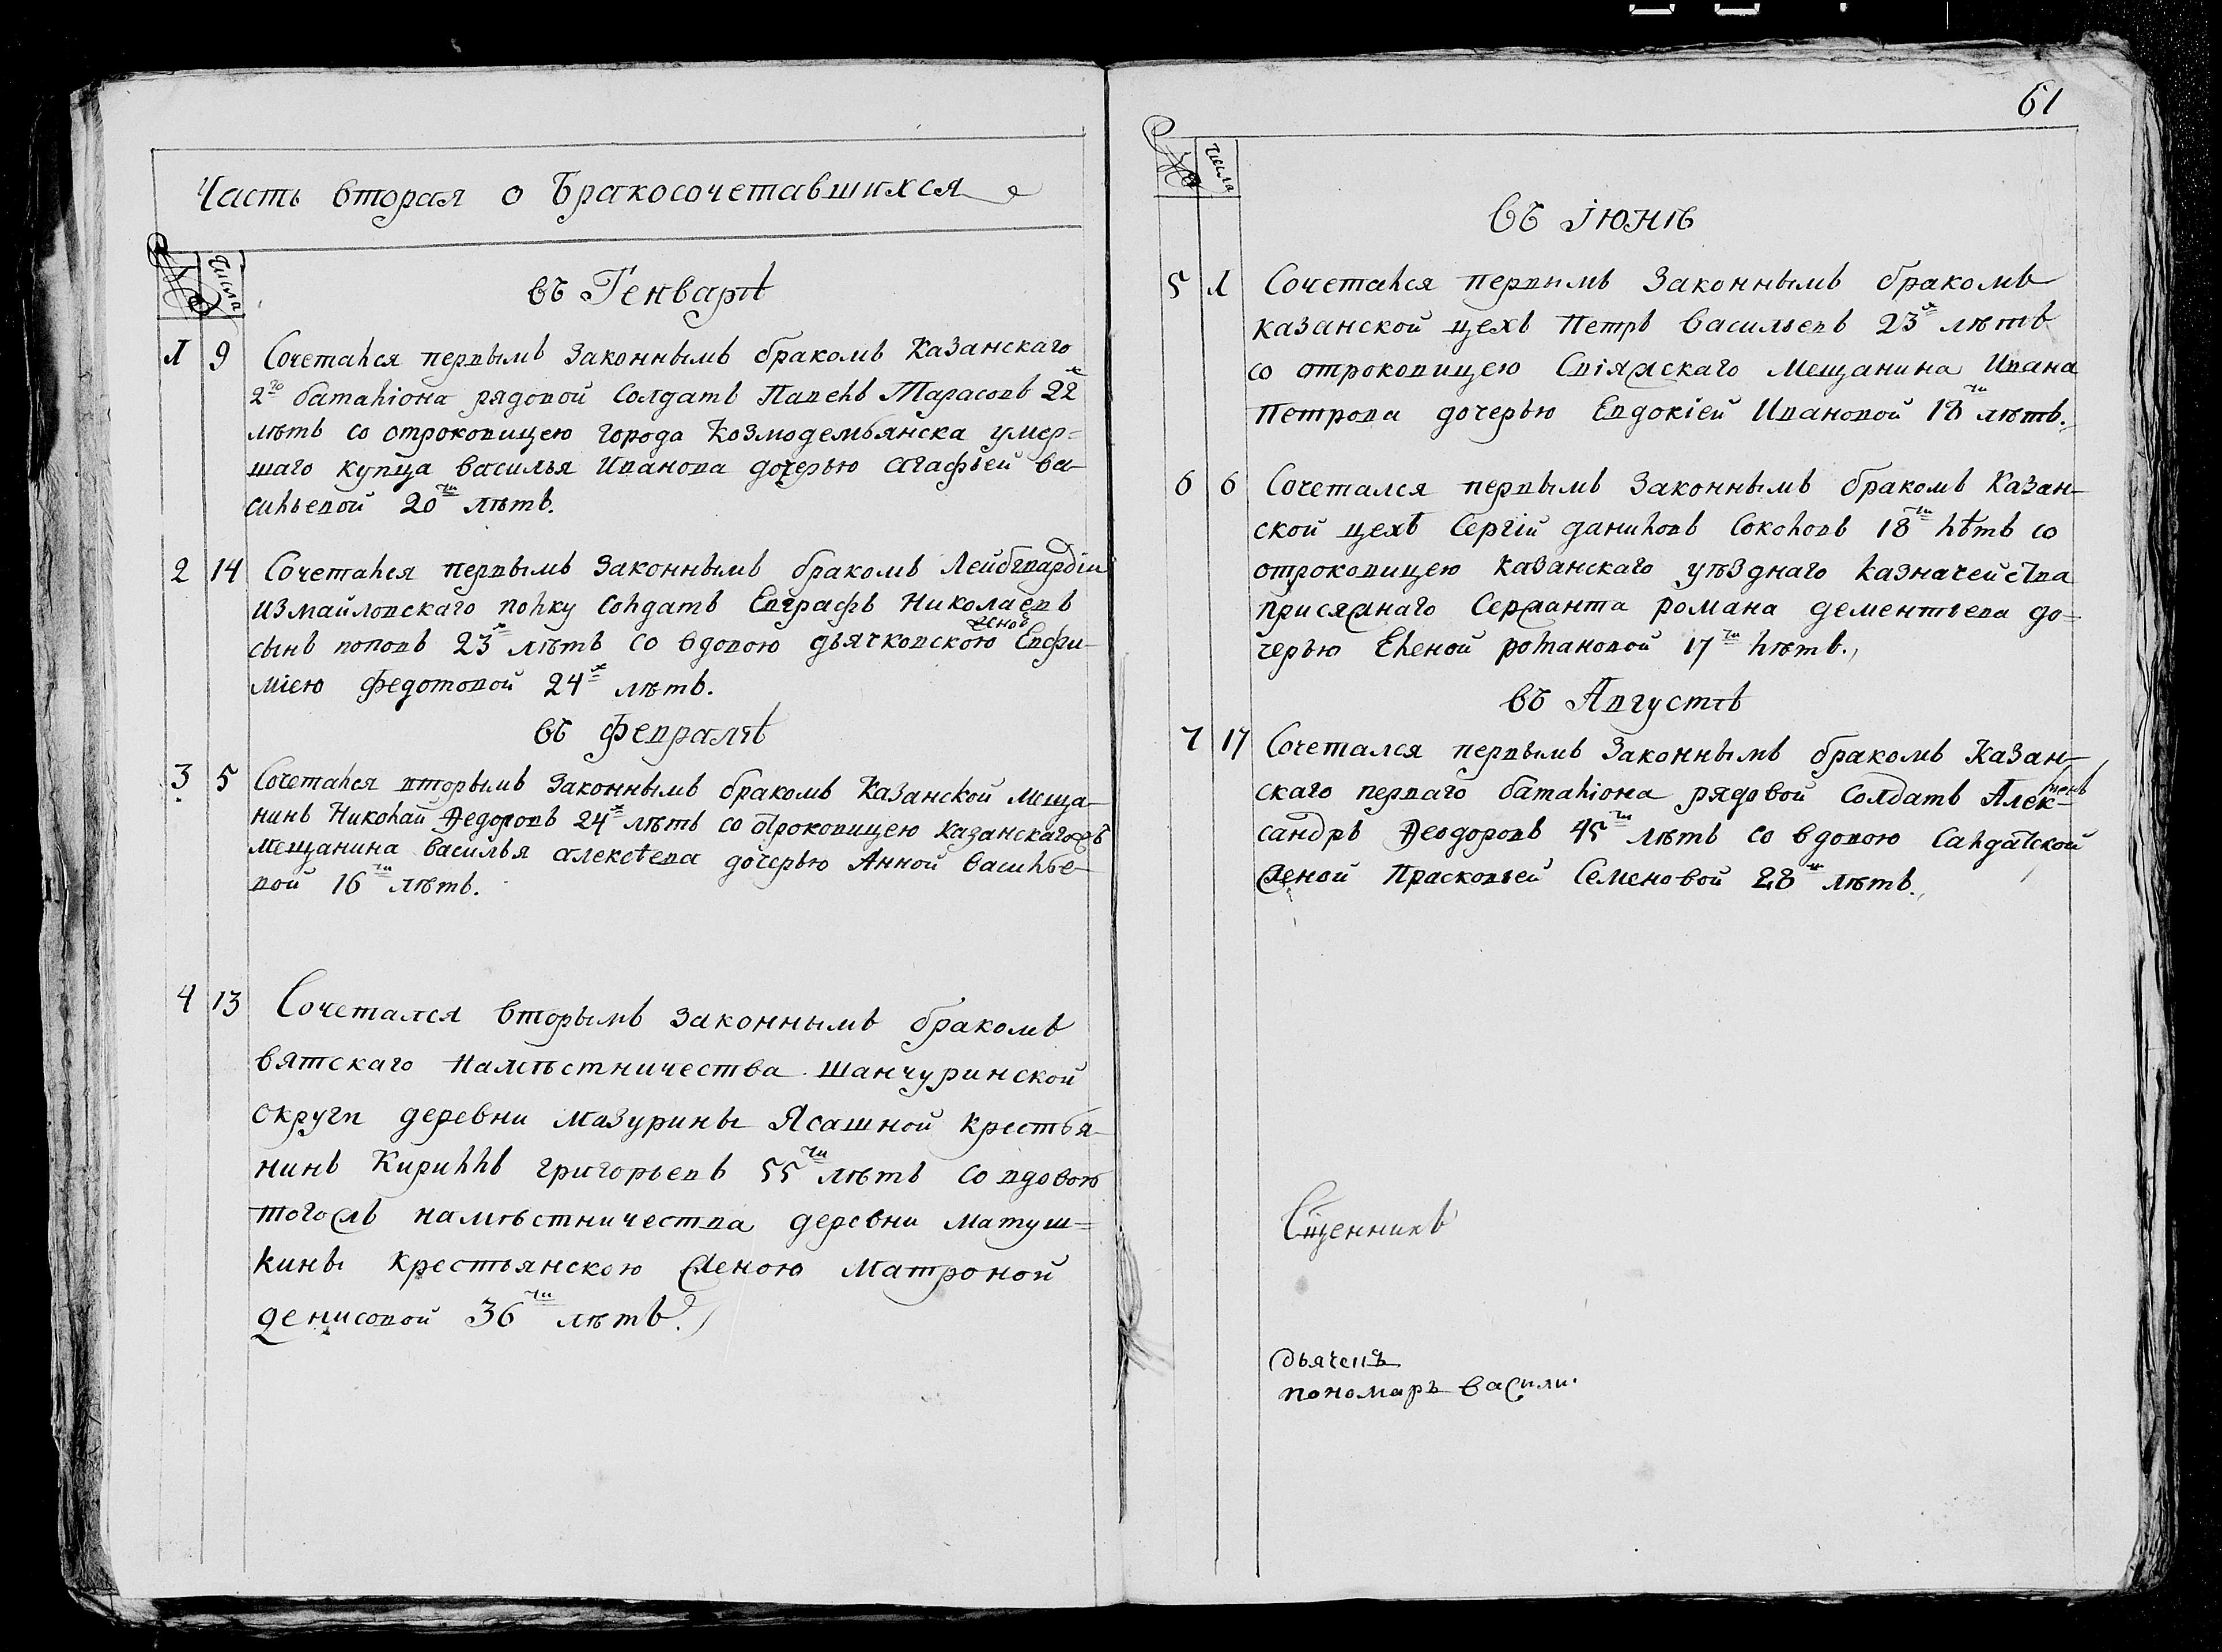 Часть вторая о бракосочетавшихся
№ числа
въ Генварѣ
1 9 Сочетался первымъ законнымъ бракомъ Казанскаго
2го баталіона рядовой солдатъ Павелъ Тарасовъ 22х
лѣтъ со отроковицею города Козмодемьянска умер=
шаго купца Василья Иванова дочерью Агафьей Ва-
сильевой 20ти лѣтъ.
2 14 Сочетался первымъ законнымъ бракомъ Лейбгвардіи
Измайловскаго полку солдатъ Евграфъ Николаевъ
сынъ Поповъ 23х лѣтъ со вдовою дьячковскою женою Евфи-
міею Федотовой 24х лѣтъ.
въ Февралѣ
3 5 Сочетался вторымъ законнымъ бракомъ Казанской меща-
нинъ Николай Ѳедоровъ 24х лѣтъ со отроковицею Казанскагожъ
мещанина Василья Алексѣева дочерью Анной Василье-
вой 16ти лѣтъ.
4 13 Сочетался вторымъ законнымъ бракомъ
Вятскаго Намѣстничества Шанчуринской
округи деревни Мазурины Ясашной крестья-
нинъ Кириллъ Григорьевъ 55ти лѣтъ со вдовою
тогожъ намѣстничества деревни Матуш=
кины крестьянскою женою Матроной
Денисовой 36ти лѣтъ.
61
№ числа
въ Іюнѣ
5 1 Сочетался первымъ законнымъ бракомъ
казанской цехъ Петръ Васильевъ 23х лѣтъ
со отроковицею Свіяжскаго мещанина Ивана
Петрова дочерью Евдокіей Ивановой 18ти лѣтъ.
6 6 Сочетался первымъ законнымъ бракомъ Казан-
ской цехъ Сергій Даниловъ Соколовъ 18ти лѣтъ со
отроковицею казанскаго уѣзднаго казначейства
присяжнаго Сержанта Романа Дементьева до=
черью Еленой Романовой 17ти лѣтъ.
въ Августѣ
7 17 Сочетался первымъ законнымъ бракомъ Казан-
скаго перваго баталіона рядовой солдатъ Алек-
сандръ Ѳеодоровъ 45ти лѣтъ со вдовою салдатской
женой Прасковьей Семеновой 28ми лѣтъ.
Сщенникъ
дьячекъ
пономарь Васили